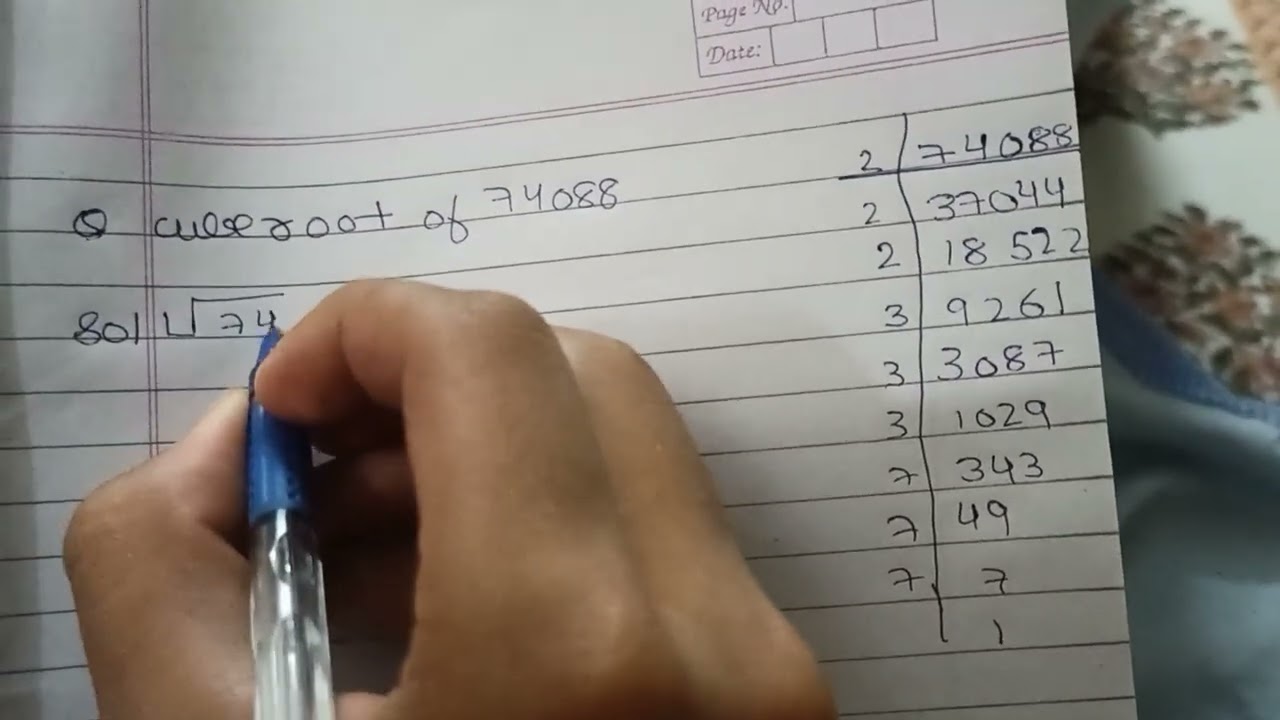 Page No.
Date:
Q cuberoot of 74088
sol √74
2 74088
2 37044
2 18522
3 9261
3 3087
3 1029
7 343
7 49
7 7
1